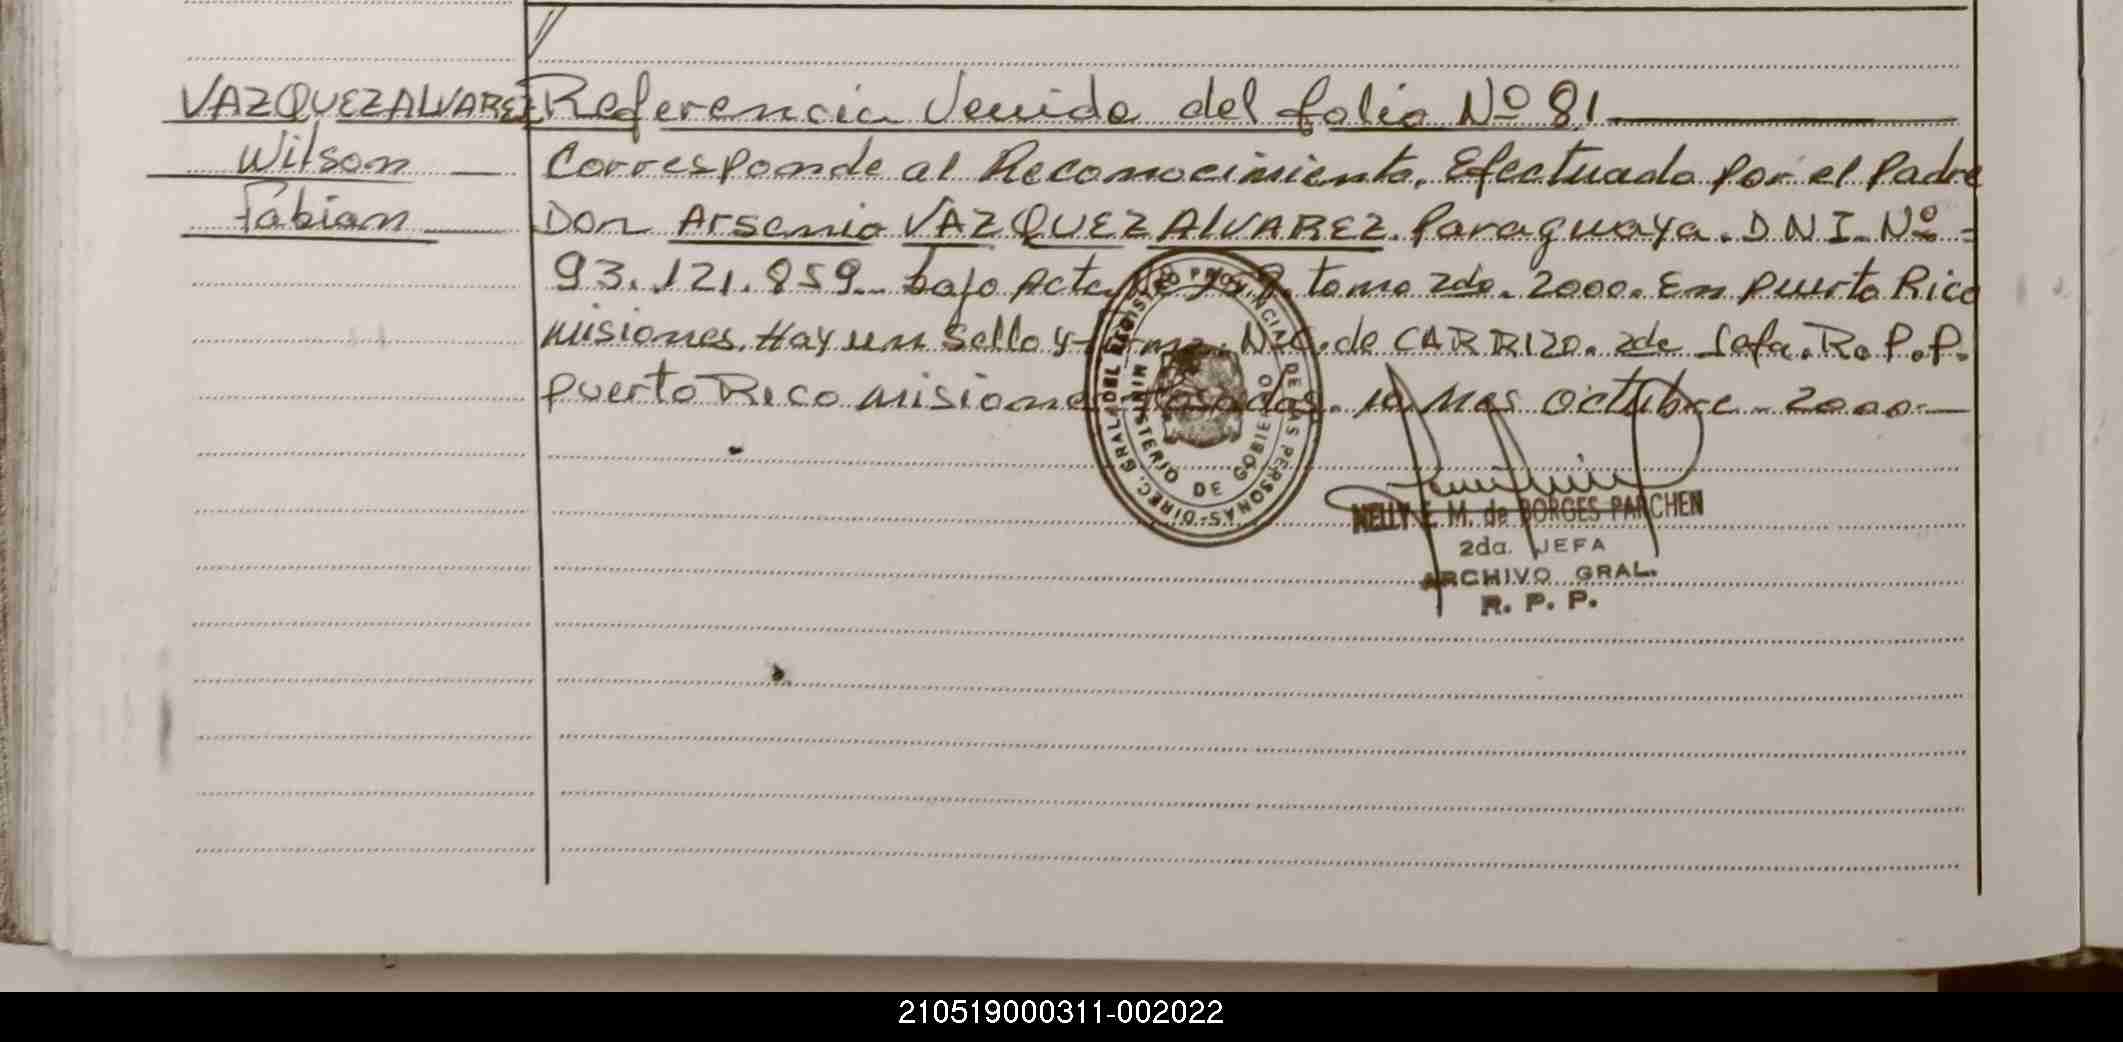 VAZQUEZ ALVAREZ
Wilson
Fabian
Referencia Venida del folio Nº 81
Corresponde al Reconocimiento. Efectuado por el Padre
Don Arsenio VAZQUEZ ALVAREZ. Paraguaya. D N I. Nº =
93.121.859. bajo Acta tomo 2do. 2000. En Puerto Rico
misiones. Hay un Sello y firma. N. C. de CARRIZO. 2da Jefa. R. P. P.
Puerto Rico misiones Posadas. mes octubre - 2000
DIREC. GRAL DEL REGISTRO PROVINCIAL DE LAS PERSONAS
MINISTERIO DE GOBIERNO
NELLY E. M. de BORGES PARCHEN
2da. JEFA
ARCHIVO GRAL.
R. P. P.
210519000311-002022